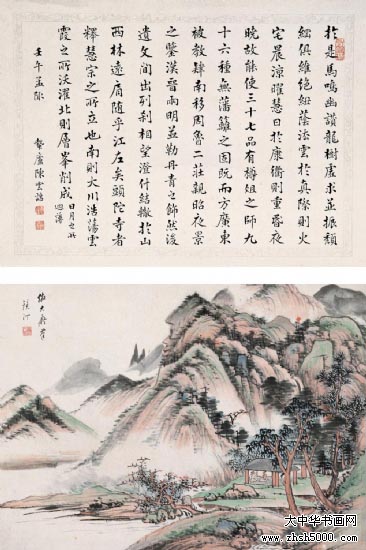 於是馬鳴幽讚龍樹虛求並振頹
綱俱維絕紐蔭法雲于真際則火
宅晨涼曜慧日於康衢則重昏夜
曉故能使三十七品有樽俎之師九
十六種無藩籬之固既而方廣東
被教肄南移周魯二莊親昭夜景
之鑒漢晉兩明並勒丹青之飾然後
遺文間出列剎相望澄什結轍於山
西林遠肩隨乎江左矣頭陀寺者
釋慧宗之所立也南則大川浩蕩雲
霞之所沃濯北則層峯削成日月之所
迴薄
壬午孟陬
陳雲誥
大中华书画网
www.zhch5000.com